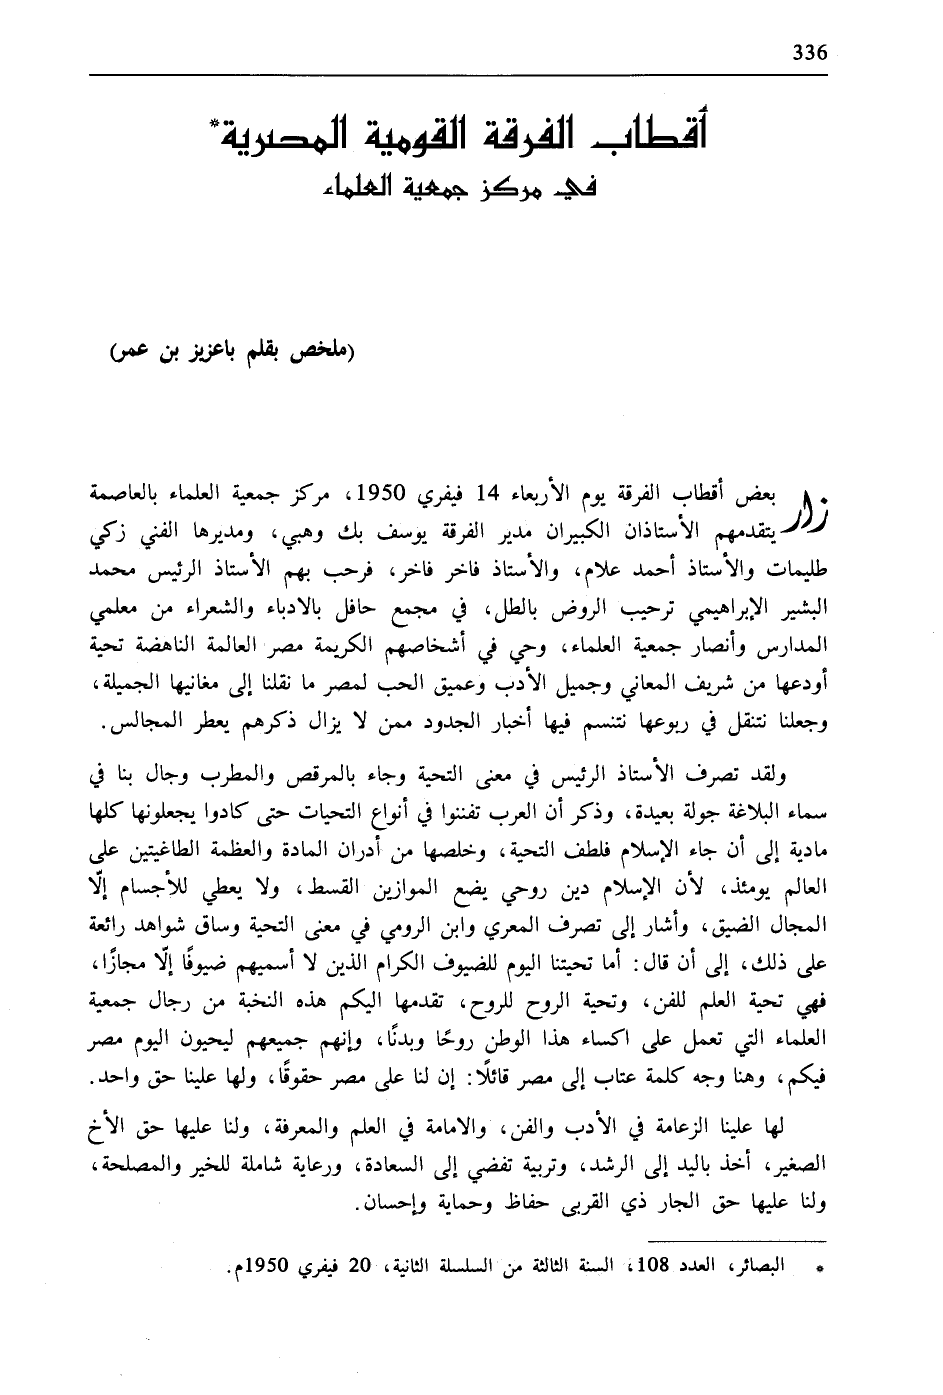 336
أقطاب الفرقة القومية المصرية*
في مركز جمعية العلماء
(ملخص بقلم باعزيز بن عمر)
زار بعض أقطاب الفرقة يوم الأربعاء 14 فيفري 1950، مركز جمعية العلماء بالعاصمة
يتقدمهم الأستاذان الكبيران مدير الفرقة يوسف بك وهبي، ومديرها الفني زكي
طليمات والأستاذ أحمد علام، والأستاذ فاخر فاخر، فرحب بهم الأستاذ الرئيس محمد
البشير الإبراهيمي ترحيب الروض بالطل، في مجمع حافل بالادباء والشعراء من معلمي
المدارس وأنصار جمعية العلماء، وحي في أشخاصهم الكريمة مصر العالمة الناهضة تحية
أودعها من شريف المعاني وجميل الأدب وعميق الحب لمصر ما نقلنا إلى مغانيها الجميلة،
وجعلنا نتنقل في ربوعها نتنسم فيها أخبار الجدود ممن لا يزال ذكرهم يعطر المجالس.
ولقد تصرف الأستاذ الرئيس في معنى التحية وجاء بالمرقص والمطرب وجال بنا في
سماء البلاغة جولة بعيدة، وذكر أن العرب تفننوا في أنواع التحيات حتى كادوا يجعلونها كلها
مادية إلى أن جاء الإسلام فلطف التحية، وخلصها من أدران المادة والعظمة الطاغيتين على
العالم يومئذ، لأن الإسلام دين روحي يضع الموازين القسط، ولا يعطي للأجسام إلّا
المجال الضيق، وأشار إلى تصرف المعري وابن الرومي في معنى التحية وساق شواهد رائعة
على ذلك، إلى أن قال: أما تحيتنا اليوم للضيوف الكرام الذين لا أسميهم ضيوفًا إلّا مجازًا،
فهي تحية العلم للفن، وتحية الروح للروح، تقدمها اليكم هذه النخبة من رجال جمعية
العلماء التي تعمل على اكساء هذا الوطن روحًا وبدنًا، وإنهم جميعهم ليحيون اليوم مصر
فيكم، وهنا وجه كلمة عتاب إلى مصر قائلًا: إن لنا على مصر حقوقًا، ولها علينا حق واحد.
لها علينا الزعامة في الأدب والفن، والامامة في العلم والمعرفة، ولنا عليها حق الأخ
الصغير، أخذ باليد إلى الرشد، وتربية تفضي إلى السعادة، ورعاية شاملة للخير والمصلحة،
ولنا عليها حق الجار ذي القربى حفاظ وحماية وإحسان.
* البصائر، العدد 108، السنة الثالثة من السلسلة الثانية، 20 فيفري 1950م.